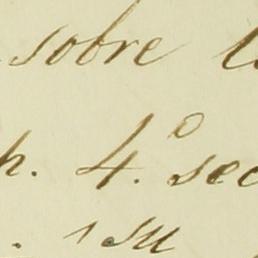 sobre
h. 4.º sec
. su